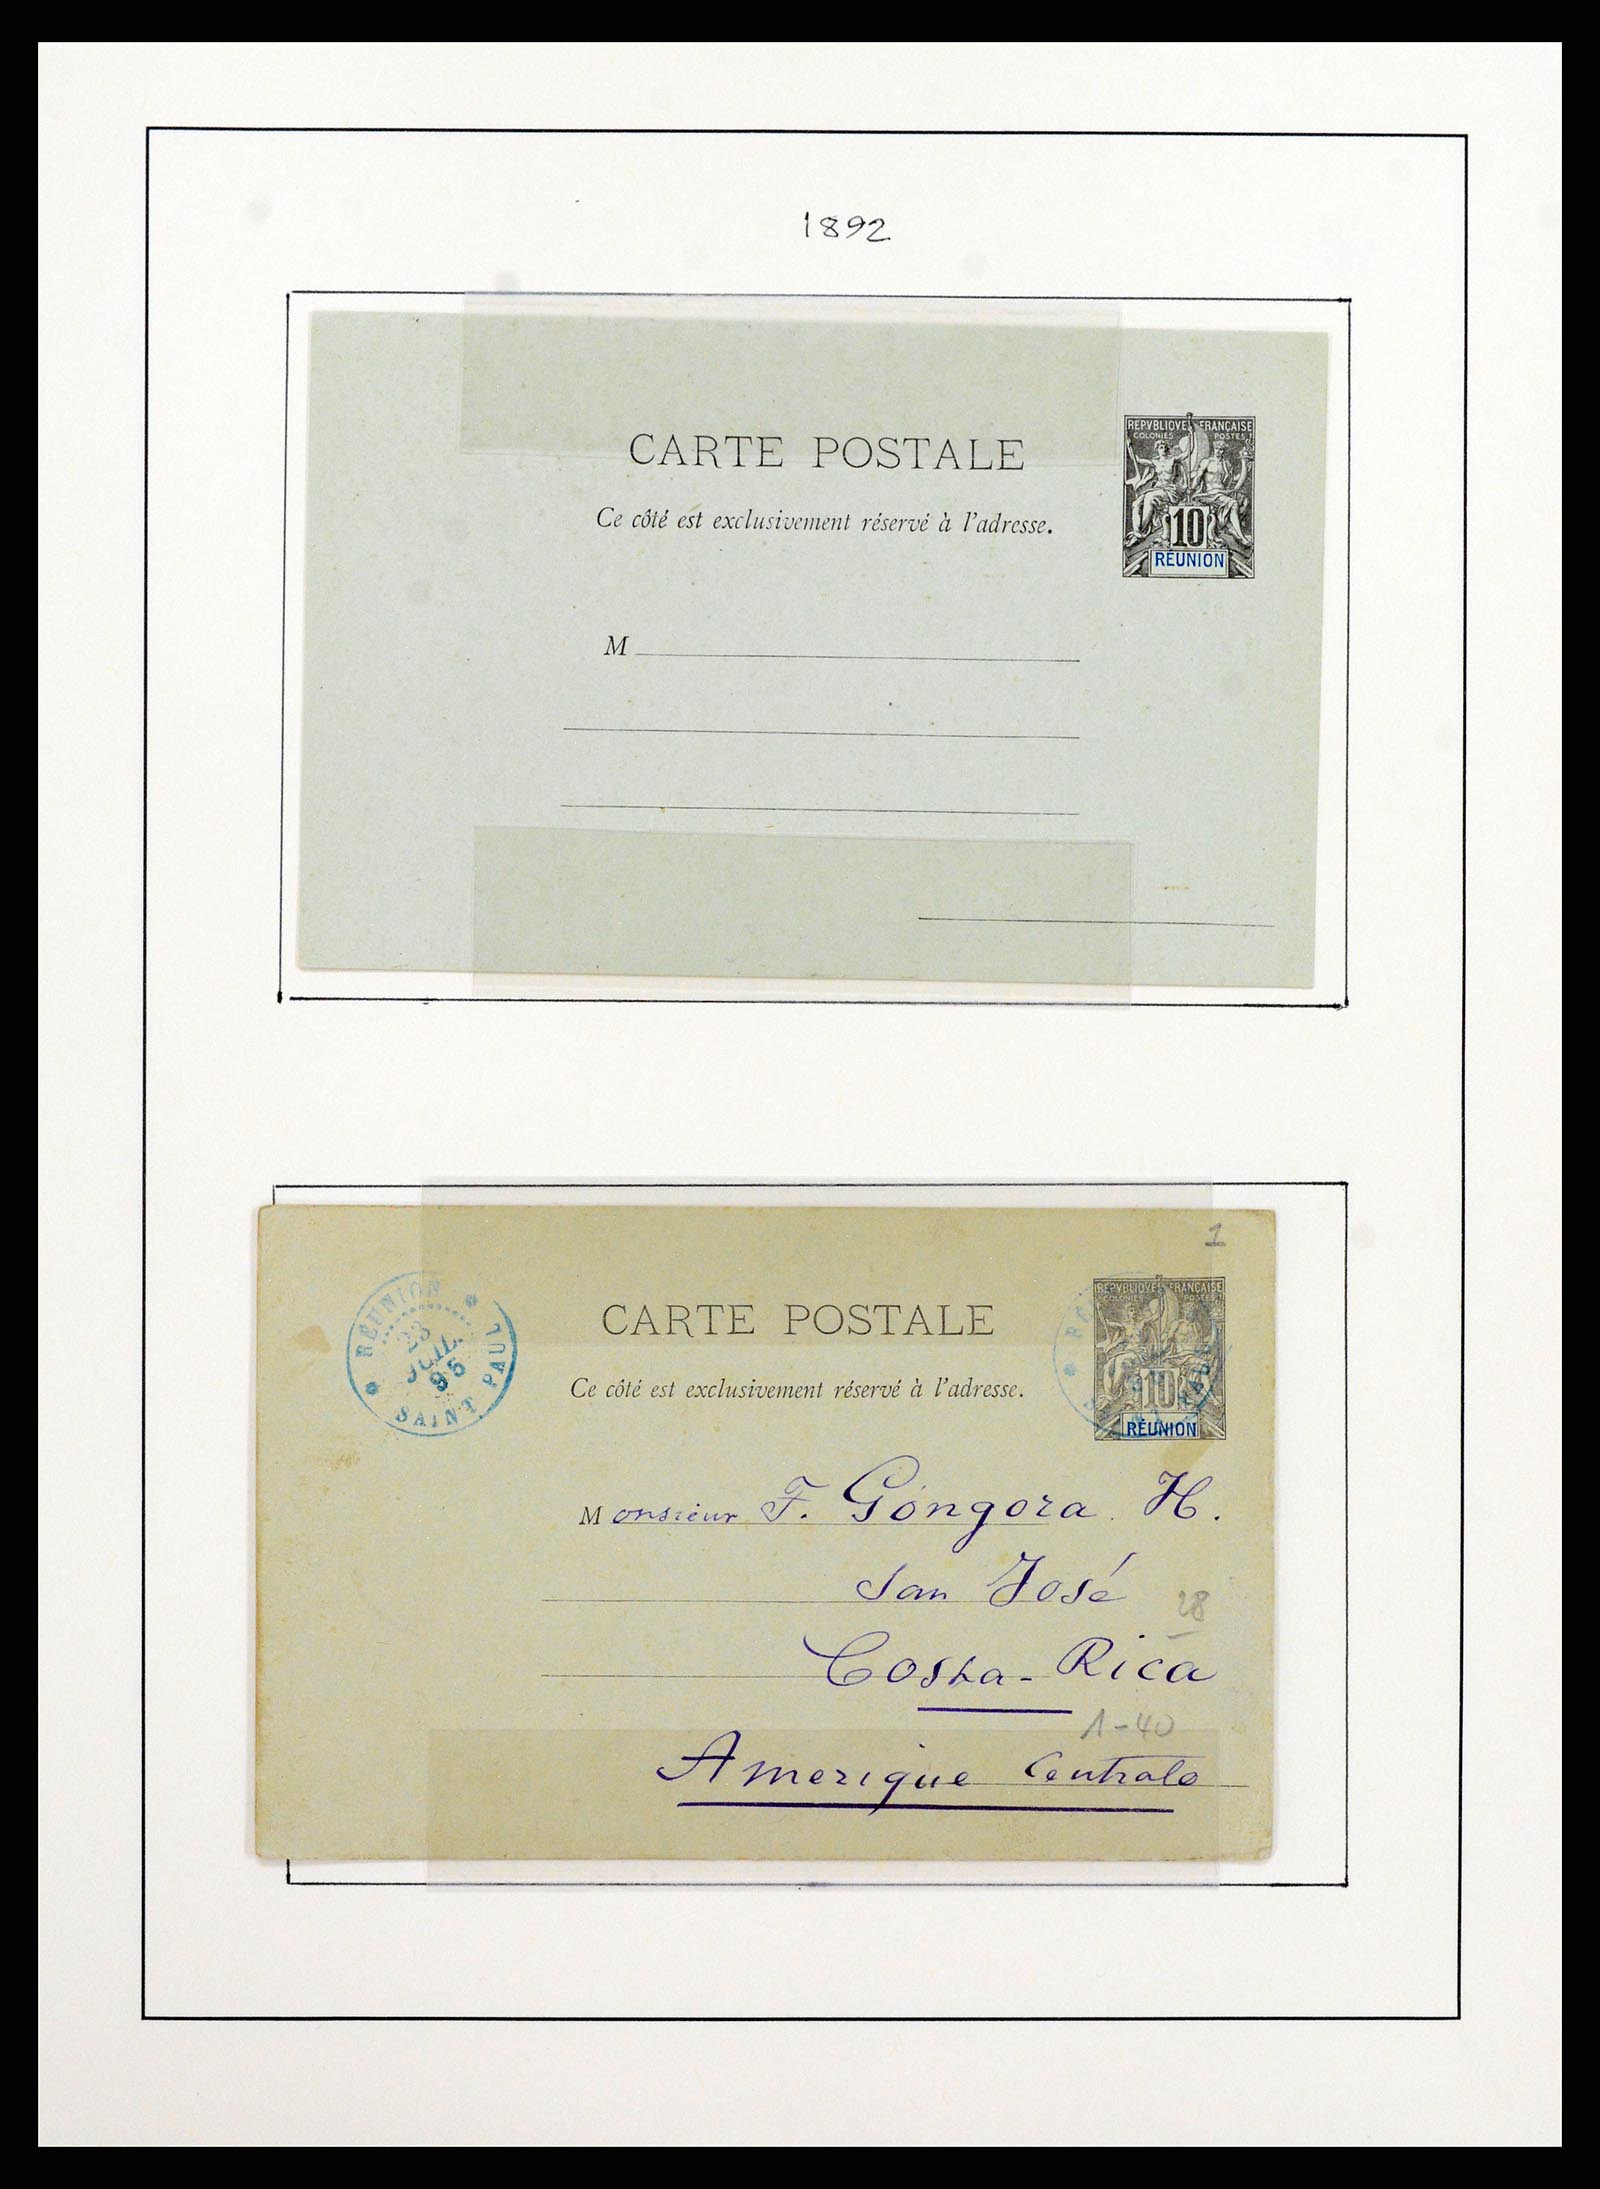 1892
REPVBLIQVE FRANÇAISE
COLONIES POSTES
10
RÉUNION
CARTE POSTALE
Ce côté est exclusivement réservé à l'adresse.
M
1
REPVBLIQVE FRANÇAISE
COLONIES POSTES
10
RÉUNION
RÉUNION
23
JUIL.
95
SAINT PAUL
CARTE POSTALE
Ce côté est exclusivement réservé à l'adresse.
Monsieur F. Góngora H.
San José
28
Costa-Rica
1-40
Amerique Centrale